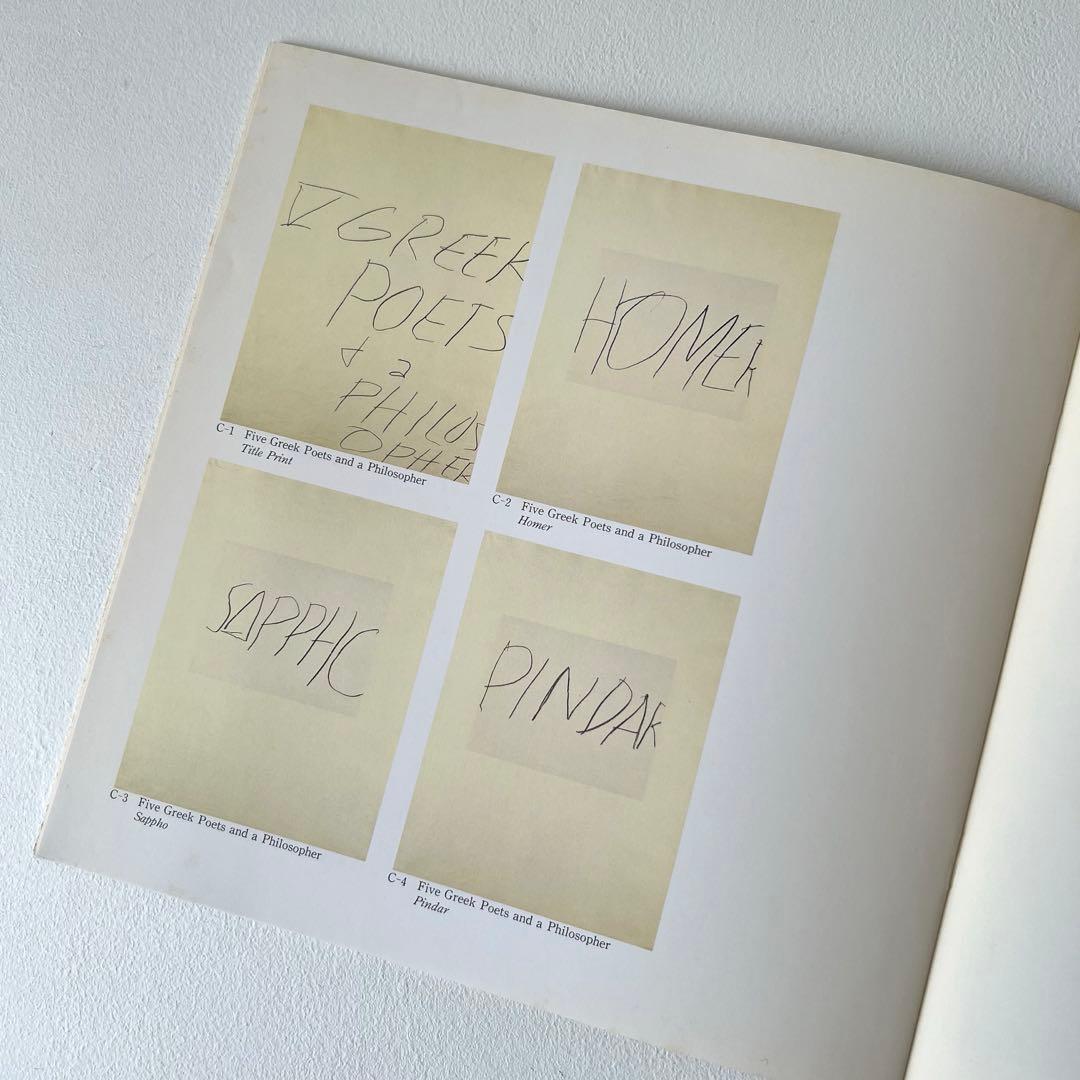 V GREEK
POETS
+ a
PHILOS
OPHER
C-1 Five Greek Poets and a Philosopher
Title Print
HOMER
C-2 Five Greek Poets and a Philosopher
Homer
SAPPHO
C-3 Five Greek Poets and a Philosopher
Sappho
PINDAR
C-4 Five Greek Poets and a Philosopher
Pindar